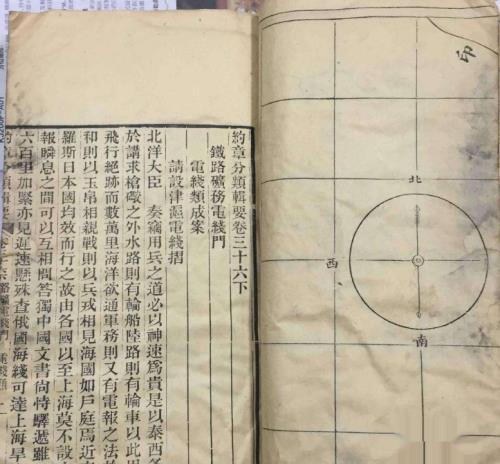 約章分類輯要卷三十六下
鐵路礦務電綫門
電綫類成案
請設津滬電綫摺
北洋大臣 奏竊用兵之道必以神速為貴是以泰西各
於講求槍礮之外水路則有輪船陸路則有輪車以此用
飛行絕跡而數萬里海洋欲通軍務則又有電報之法於
和則以玉帛相親戰則以兵戎相見海國如戶庭焉近來
羅斯日本國均效而行之故由各國以至上海莫不設
報瞬息之間可以互相問答獨中國文書尚恃驛遞雖
六百里加緊亦已遲速懸殊查俄國海綫可達上海旱
印
北
西
南